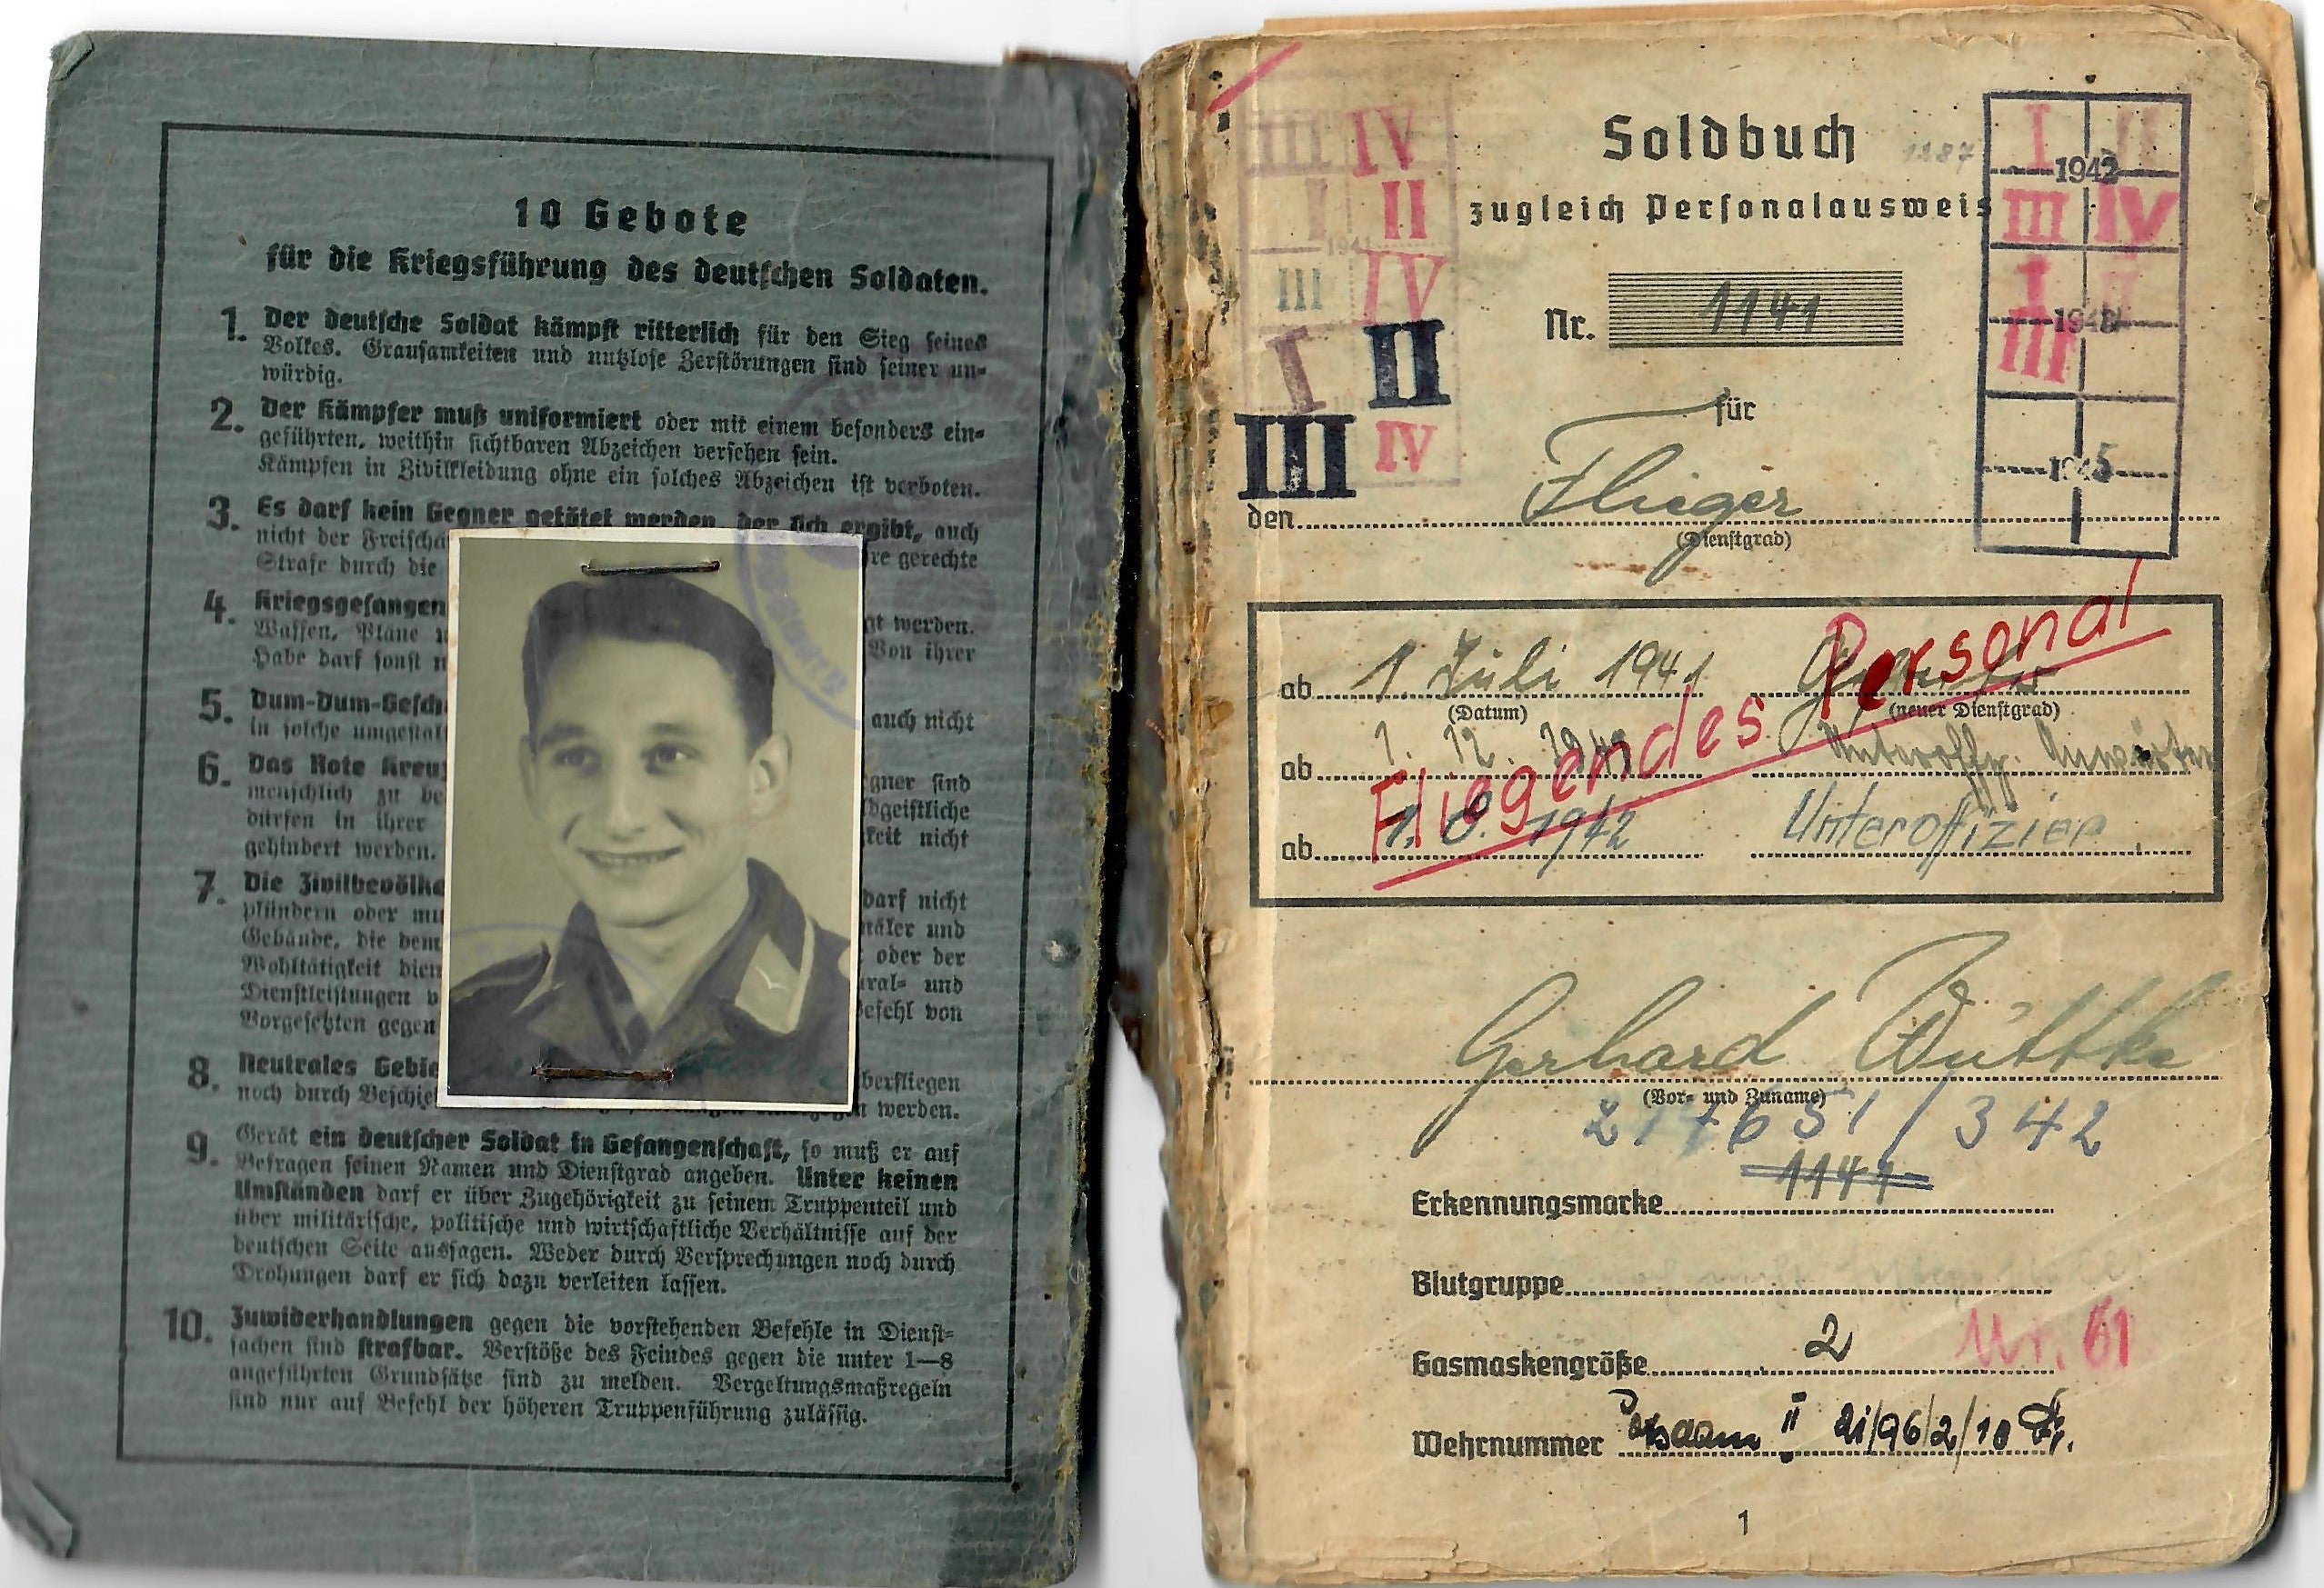 10 Gebote
für die Kriegsführung des deutschen Soldaten.
1. Der deutsche Soldat kämpft ritterlich für den Sieg seines
Volkes. Grausamkeiten und nutzlose Zerstörungen sind seiner un-
würdig.
2. Der Kämpfer muß uniformiert oder mit einem besonders ein-
geführten, weithin sichtbaren Abzeichen versehen sein.
Kämpfen in Zivilkleidung ohne ein solches Abzeichen ist verboten.
3. Es darf kein Gegner getötet werden, der sich ergibt, auch
nicht der Freischä
re gerechte
Strafe durch die
4. Kriegsgefangen
gt werden.
Waffen, Pläne
Von ihrer
Habe darf sonst
5. Dum-Dum-Gesch
auch nicht
in solche umgestal
6. Das Rote Kreuz
gner sind
menschlich zu be
dgeistliche
dürfen in ihrer
keit nicht
gehindert werden.
7. Die Zivilbevölke
darf nicht
plündern oder mu
mäler und
Gebäude, die dem
oder der
Wohltätigkeit dien
ral- und
Dienstleistungen v
Befehl von
Vorgesetzten gegen
8. Neutrales Gebie
berfliegen
noch durch Beschie
werden.
9. Gerät ein deutscher Soldat in Gefangenschaft, so muß er auf
Befragen seinen Namen und Dienstgrad angeben. Unter keinen
Umständen darf er über Zugehörigkeit zu seinem Truppenteil und
über militärische, politische und wirtschaftliche Verhältnisse auf der
deutschen Seite aussagen. Weder durch Versprechungen noch durch
Drohungen darf er sich dazu verleiten lassen.
10. Zuwiderhandlungen gegen die vorstehenden Befehle in Dienst-
sachen sind strafbar. Verstöße des Feindes gegen die unter 1—8
angeführten Grundsätze sind zu melden. Vergeltungsmaßregeln
sind nur auf Befehl der höheren Truppenführung zulässig.
III IV
I II
1941
III IV
I II
III IV
Soldbuch
zugleich Personalausweis
I II
1942
III IV
I II
III
Nr. 1141
für
den Flieger
(Dienstgrad)
Fliegendes Personal
ab 1. Juli 1941
(Datum) (neuer Dienstgrad)
ab 1. 12. Unteroffz. Anwärter
ab 1942 Unteroffizier
Gerhard Wüttke
(Vor- und Zuname)
217651/342
Erkennungsmarke 1141
Blutgruppe
Gasmaskengröße 2 Nr. 61
Wehrnummer Potsdam II 21/96/2/10
1